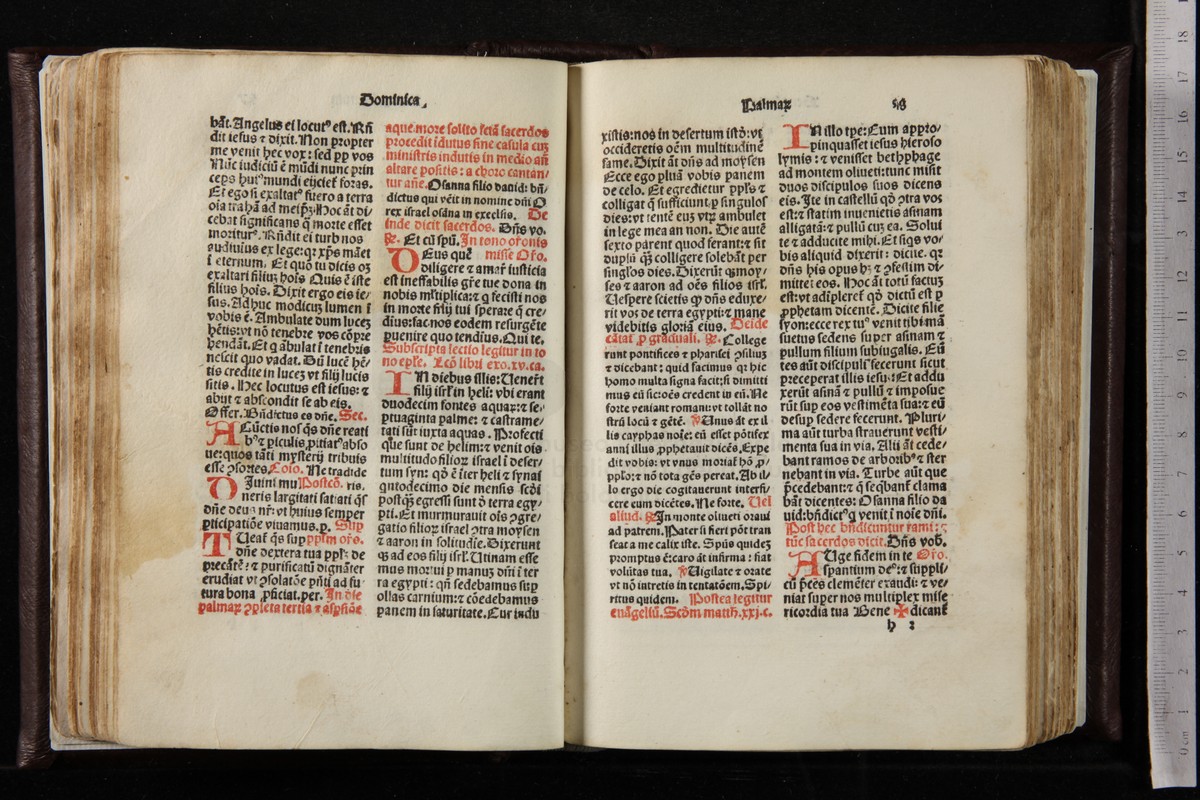 Dominica
bāt. Angelus ei locutꝰ est. Rñ
dit iesus ⁊ dixit. Non propter
me venit hec vox: sed pp̄ vos
Nūc iudiciū ē mūdi nunc prin
ceps huiꝰ mundi eijcief foras.
Et ego si exaltatꝰ fuero a terra
oīa trahā ad meip̄ꝫ. Hoc āt di⸗
cebat significans q̄ morte esset
moriturꝰ. Rñdit ei turb nos
audiuius ex lege: qꝛ xp̄s māet
ī eternum. Et quō tu dicis oꝫ
exaltari filiuꝫ hoīs Quis ē iste
filius hoīs. Dixit ergo eis ie⸗
sus. Adhuc modicuꝫ lumen ī
vobis ē. Ambulate dum luceꝫ
hētis: vt nō tenebre vos cōpre
hendāt. Et q̄ ābulat ī tenebris
nescit quo vadat. Dū lucē hē⸗
tis credite in luceꝫ vt filij lucis
sitis. Hec locutus est iesus: ⁊
abijt ⁊ abscondit se ab eis.
Offer. Bñdictus es dñe. Sec.
A Cūctis nos q̄s dñe reati
bꝰ ⁊ piculis ꝓitiatꝰ abso
ue: quos tāti mysterij tribuis
esse ↄsortes. Cōio. Ne tradide
D Iuini mu Postcō. ris.
neris largitati satiati q̄s
dñe deus nr̄: vt huius semper
ꝑticipatiōe viuamus. ꝑ. Sup
T Ueat q̄s sup ppl̄m or̄o.
dñe dextera tua ppl̄s de
precāte: ⁊ purificatū dignāter
erudiat vt ↄsolatōe pñti ad fu
tura bona ꝓficiat. per. In die
palmaꝝ ↄpleta tertia ⁊ aspsiōe
aque. more solito fctā sacerdos
procedit īdutus sine casula cuꝫ
ministris indutis in medio añ
altare positis: a choro cantan⸗
tur añe. Osanna filio dauid: bñ⸗
dictus qui vēit in nomine dñi O
rex israel osāna in excelsis. De
inde dicit sacerdos. Dñs vo.
℟. Et cū spū. In tono or̄onis
D Eus quē misse Or̄o.
diligere ⁊ amar̄ iusticia
est ineffabilis gr̄e tue dona in
nobis ml̄tiplica: ⁊ q̄ fecisti nos
in morte filij tui sperare q̄ cre⸗
dius: fac nos eodem resurgēte
ꝑuenire quo tendius. Qui te.
Subscripta lectio legitur in to
no epl̄e. Lc̄ō libri exo. xv. ca.
I N diebus illis: Uenerūt
filij isrl̄ in heli: vbi erant
duodecim fontes aquaꝝ: ⁊ se⸗
ptuaginta palme: ⁊ castrame⸗
tati sūt iuxta aquas. Profecti
que sunt de helim: ⁊ venit oīs
multitudo filioꝝ israel ī deser⸗
tum syn: qd̄ ē īter heli ⁊ synai
quītodecimo die mensis scd̄i
postq̄ꝫ egressi sunt d̄ terra egy⸗
pti. Et murmurauit oīs ↄgre⸗
gatio filioꝝ israel ↄtra moysen
⁊ aaron in solitudīe. Dixerunt
qꝫ ad eos filij isrl̄. Utinam esse
mus mortui ꝑ manuꝫ dñi ī ter
ra egypti: qñ sedebamus sup
ollas carnium: ⁊ cōedebamus
panem in saturitate. Cur īndu
Palmaꝝ
xistis: nos in desertum istō: vt
occideretis oēm multitudinē
fame. Dixit āt dñs ad moysen
Ecce ego pluā vobis panem
de celo. Et egredietur ppl̄s ⁊
colligat q̄ sufficiunt ꝑ singulos
dies: vt tentē euꝫ vtꝝ ambulet
in lege mea an non. Die autē
sexto parent quod ferant: ⁊ sit
duplū q̄ꝫ colligere solebāt per
singlos dies. Dixerūt qꝫ moy⸗
ses ⁊ aaron ad oēs filios isrl̄.
Uespere scietis qꝙ dñs eduxe⸗
rit vos de terra egypti: ⁊ mane
videbitis gloriā eius. Deīde
cātat̄ ꝓ graduali. ℟. College
runt pontifices ⁊ pharisei ↄsiliuꝫ
⁊ dicebant: quid facimus qꝛ hic
homo multa signa facit: si dimitti
mus eū sic: oēs credent in eū. Ne
forte veniant romani: vt tollāt no
strā locū ⁊ gētē. ℣ Unus āt ex il
lis cayphas noīe: cū esset pōtifex
anni illius ꝓphetauit dicēs. Expe
dit vobis: vt vnus moriat̄ hō ꝓ⸗
ppl̄o: ⁊ nō tota gēs pereat. Ab il⸗
lo ergo die cogitauerunt interfi⸗
cere eum dicētes. Ne forte. Uel
aliud. ℟ In monte oliueti oraui
ad patrem. Pater si fieri pōt tran
seat a me calix iste. Spūs quideꝫ
promptus ē: caro āt infirma: fiat
volūtas tua. ℣ Uigilate ⁊ orate
vt nō intretis in tentatōem. Spi⸗
ritus quidem. Postea legitur
euāgeliū. Scd̄m matth. xxj. c.
I N illo tpe: Cum appro⸗
pinquasset iesus hieroso
lymis: ⁊ venisset bethphage
ad montem oliueti: tunc misit
duos discipulos suos dicens
eis. Ite in castellū qd̄ ↄtra vos
est: ⁊ statim inuenietis asinam
alligatā: ⁊ pullū cuꝫ ea. Solui
te ⁊ adducite mihi. Et siqs vo⸗
bis aliquid dixerit: dicite. qꝛ
dñs his opus hꝫ ⁊ ↄfestim di⸗
mittet eos. Hoc āt totū factuꝫ
est: vt adīpleret̄ qd̄ dictū est ꝑ
ꝓphetam dicentē. Dicite filie
syon: ecce rex tuꝰ venit tibi mā
suetus sedens super asinam ⁊
pullum filium subiugalis. Eū
tes aūt discipuli fecerunt sicut
ꝑceperat illis iesus: Et addu
xerūt asinā ⁊ pullū ⁊ imposue
rūt sup eos vestimēta sua: ⁊ eū
desup sedere fecerunt. Pluri⸗
ma aūt turba strauerunt vesti⸗
menta sua in via. Alij āt cede⸗
bant ramos de arboribꝰ ⁊ ster
nebant in via. Turbe aūt que
p̄cedebant: ⁊ q̄ seq̄banf clama
bāt dicentes: Osanna filio da
uid: bñdictꝰ q̄ venit ī noīe dñi.
Post hec bñdicuntur rami: ⁊
tūc sacerdos dicit. Dñs vob.
A Uge fidem in te Or̄o.
spantium deꝰ: ⁊ suppli⸗
cū p̄ces clemēter exaudi: ⁊ ve⸗
niat super nos multiplex mise
ricordia tua Bene ✠ dicant̄
h 2